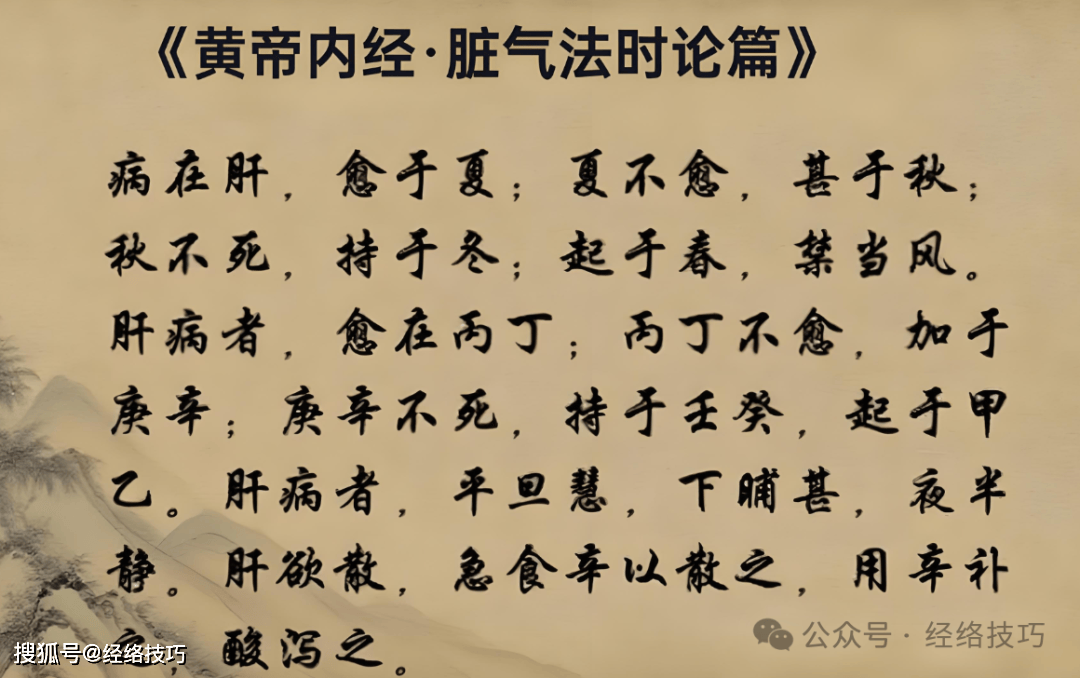 《黄帝内经·脏气法时论篇》
病在肝，愈于夏；夏不愈，甚于秋；
秋不死，持于冬；起于春，禁当风。
肝病者，愈在丙丁；丙丁不愈，加于
庚辛；庚辛不死，持于壬癸，起于甲
乙。肝病者，平旦慧，下晡甚，夜半
静。肝欲散，急食辛以散之，用辛补
之，酸泻之。
搜狐号@经络技巧
公众号·经络技巧